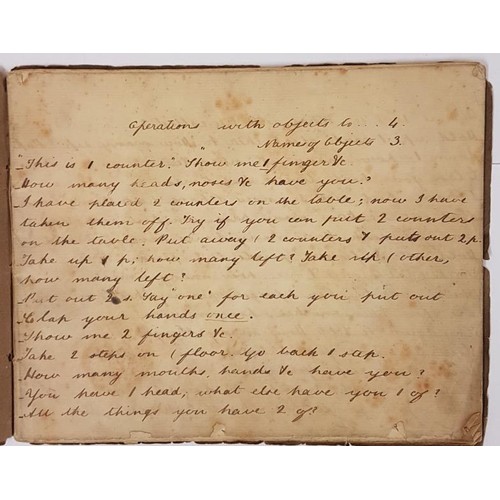 Operations with objects to... 4.
Names of Objects 3.
"This is 1 counter." "Show me 1 finger &c.
How many heads, noses &c have you?
I have plac'd 2 counters on the table; now I have
taken them off. Try if you can put 2 counters
on the table. Put away ( 2 counters & put out 2 p.
Take up 1 p; how many left? Take up ( other,
how many left?
Put out 2 s. Say "one" for each you put out
Clap your hands once.
Show me 2 fingers &c.
Take 2 steps on ( floor. Go back 1 step.
How many mouths, hands &c have you?
You have 1 head; what else have you 1 of?
All the things you have 2 of?